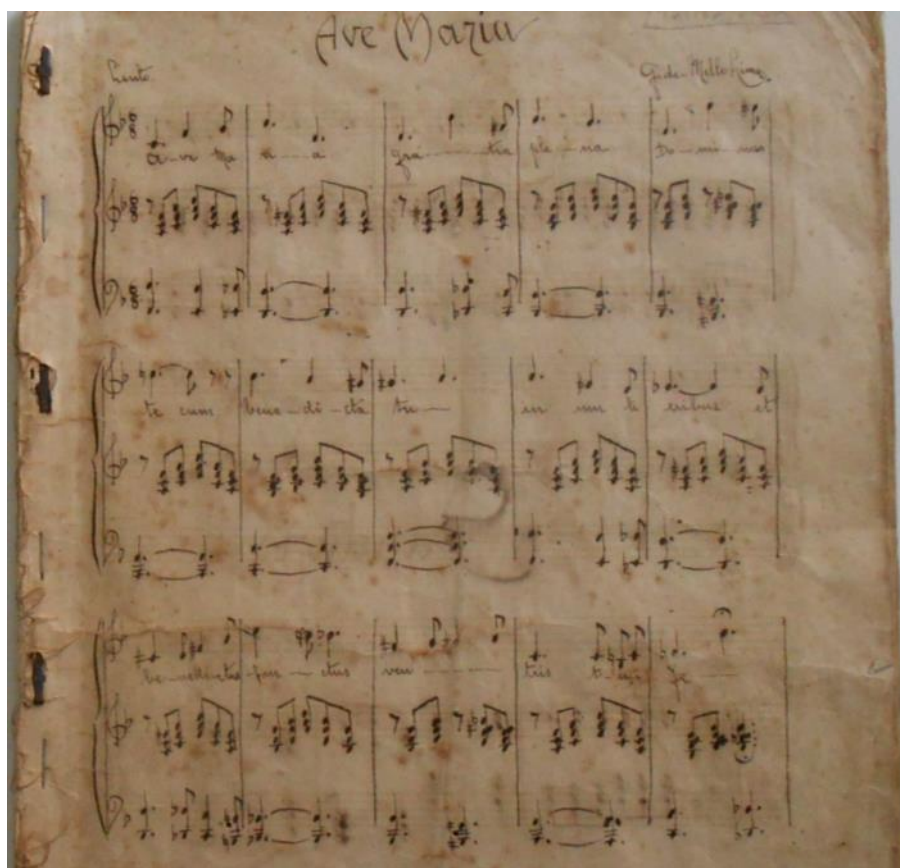 Ave Maria
Lento
A-ve Ma ri-a gra-tia ple-na Do-mi-nus
te cum bene-di-cta tu in mu li eribus et
be-nedictus fru-ctus ven tris t- Je